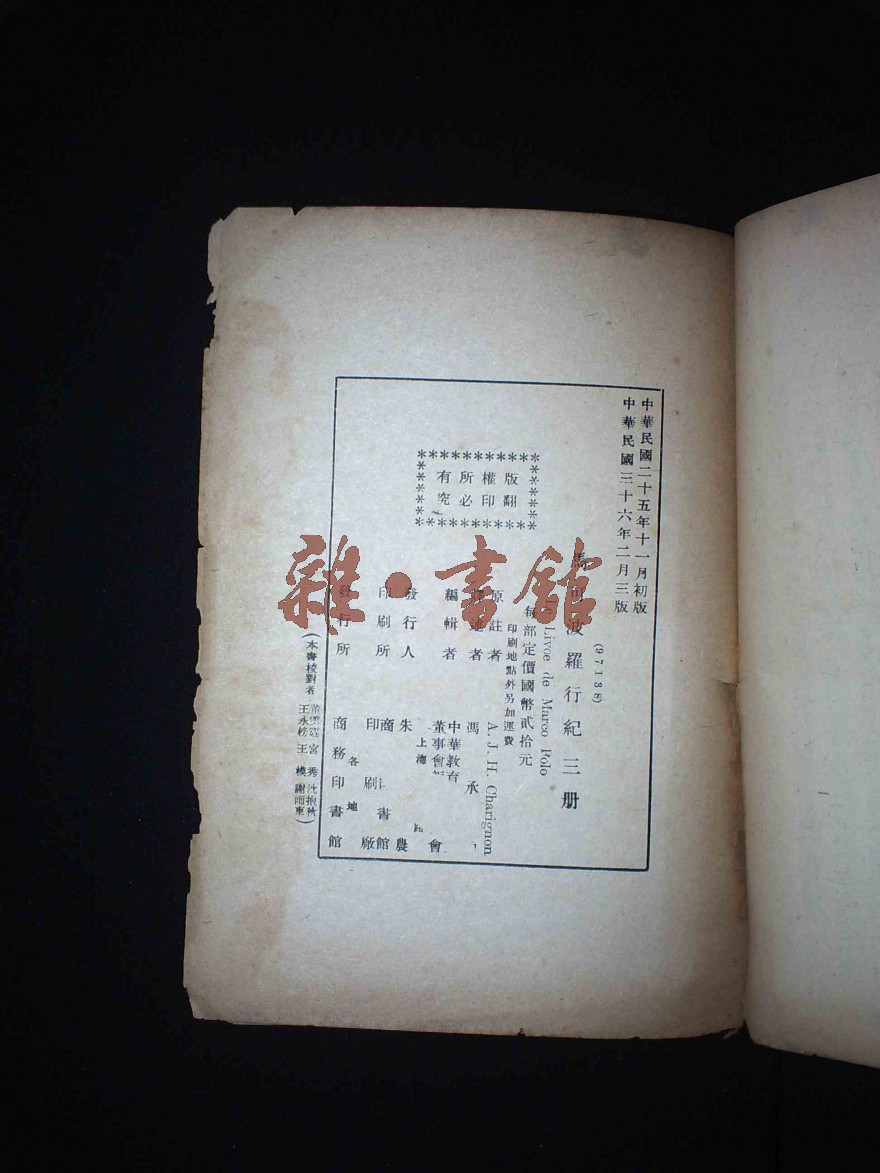 中華民國二十五年十一月初版
中華民國三十六年二月三版
(97138)
波羅行紀三册
Livoe de Marco Polo
每部定價國幣貳拾元
印刷地點外另加運費
原註者 A. J. H. Charignon
述者 馮承
編輯者 中華教育 董事會 會
發行人 朱 農
上海
印刷所 商 印書館
印刷廠
發行所 商務印書館
各地
版權所有
翻印必究
(本書校對者 王永榜 王模 宮秀 沈抱秋 謝雨東)
雜·書館